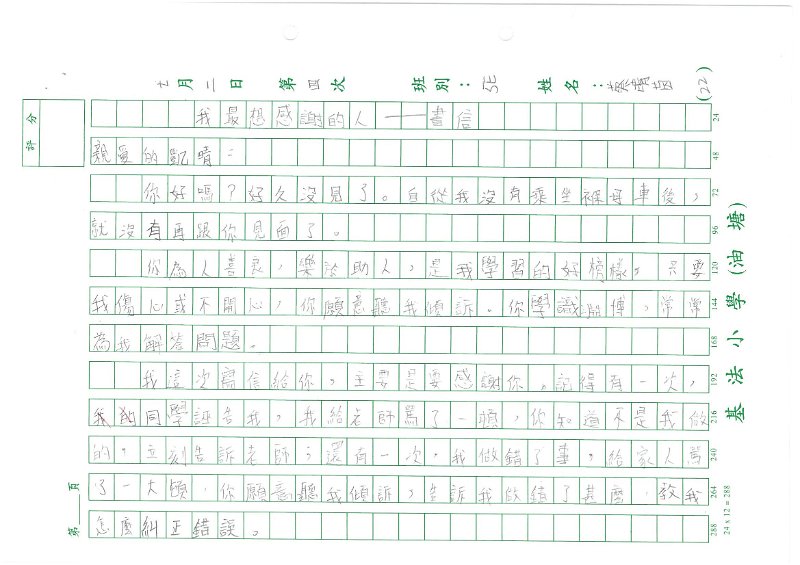 七月二日 第四次 班別：5E 姓名：蔡 (22)
評分
我最想感謝的人——書信
親愛的凱晴：
你好嗎？好久沒見了。自從我沒有乘坐褓母車後，
就沒有再跟你見面了。
你為人善良，樂於助人，是我學習的好榜樣，只要
我傷心或不開心，你願意聽我傾訴。你學識淵博，常常
為我解答問題。
我這次寫信給你，主要是要感謝你。記得有一次，
我的同學誣告我，我給老師罵了一頓，你知道不是我做
的，立刻告訴老師；還有一次，我做錯了事，給家人罵
了一大頓，你願意聽我傾訴，告訴我做錯了甚麼，教我
怎麼糾正錯誤。
24
48
72
96
120
144
168
192
216
240
264
288
24 x 12 = 288
基法小學(油塘)
第 頁